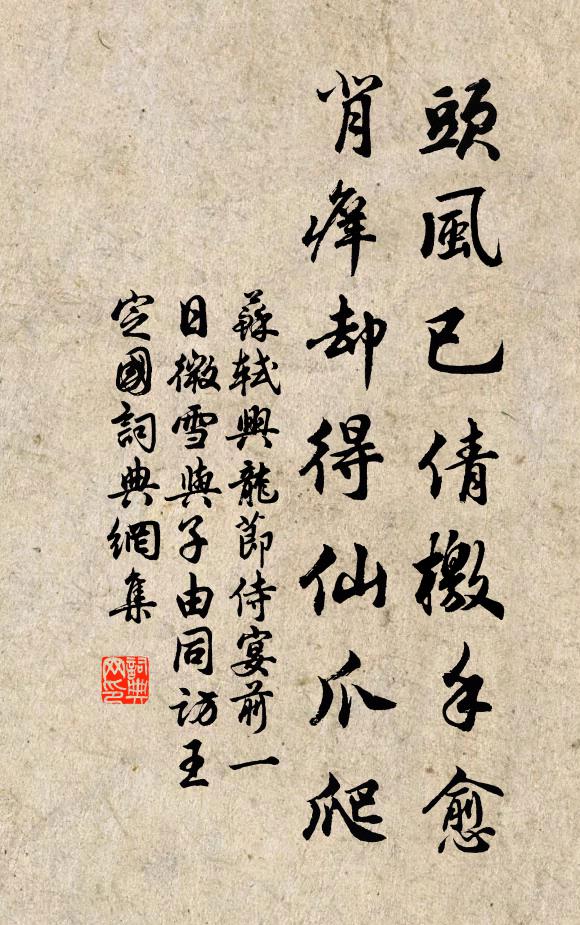 頭風已倩檄手愈
背癢却得仙爪爬
蘇軾興龍節侍宴前一
日微雪與子由同訪王
定國詞典網集
詞典
网印